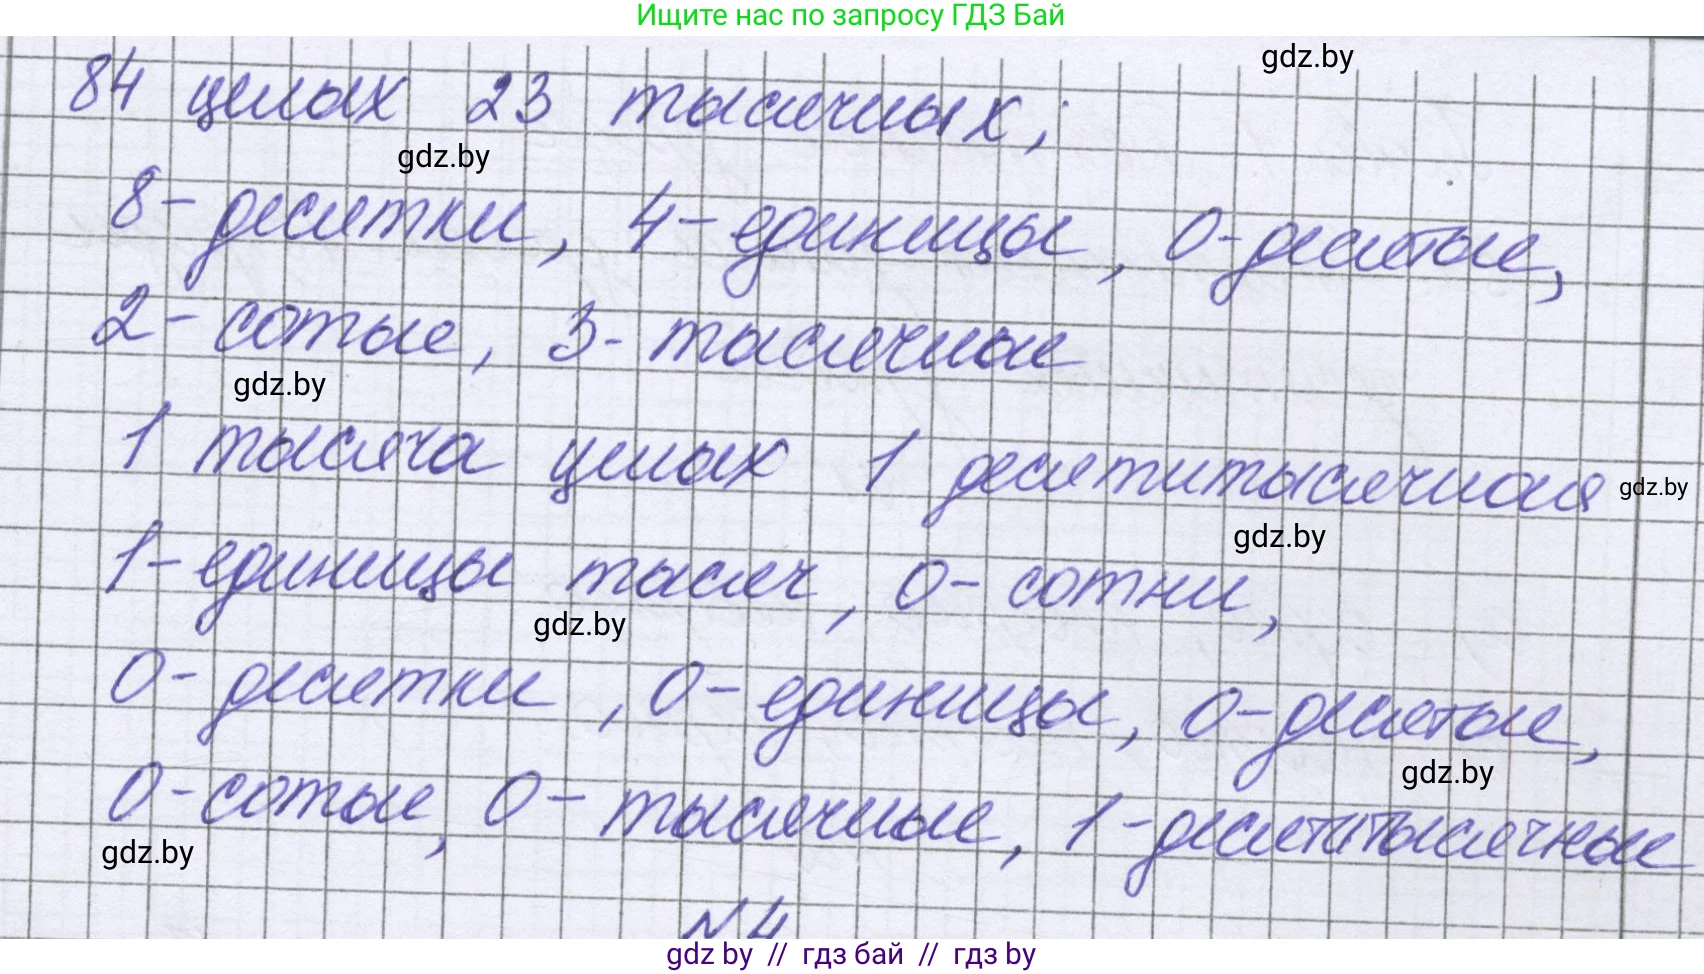 Ищите нас по запросу ГДЗ Бай
gdz.by
84 целых 23 тысячных;
gdz.by
8- десятки, 4- единицы, 0- десятые,
2- сотые, 3- тысячные
gdz.by
1 тысяча целых 1 десятитысячная
gdz.by
gdz.by
1- единицы тысяч, 0- сотни,
gdz.by
0- десятки, 0- единицы, 0- десятые,
gdz.by
0- сотые, 0- тысячные, 1- десятитысячные
gdz.by
№4
gdz by // гдз бай // гдз by